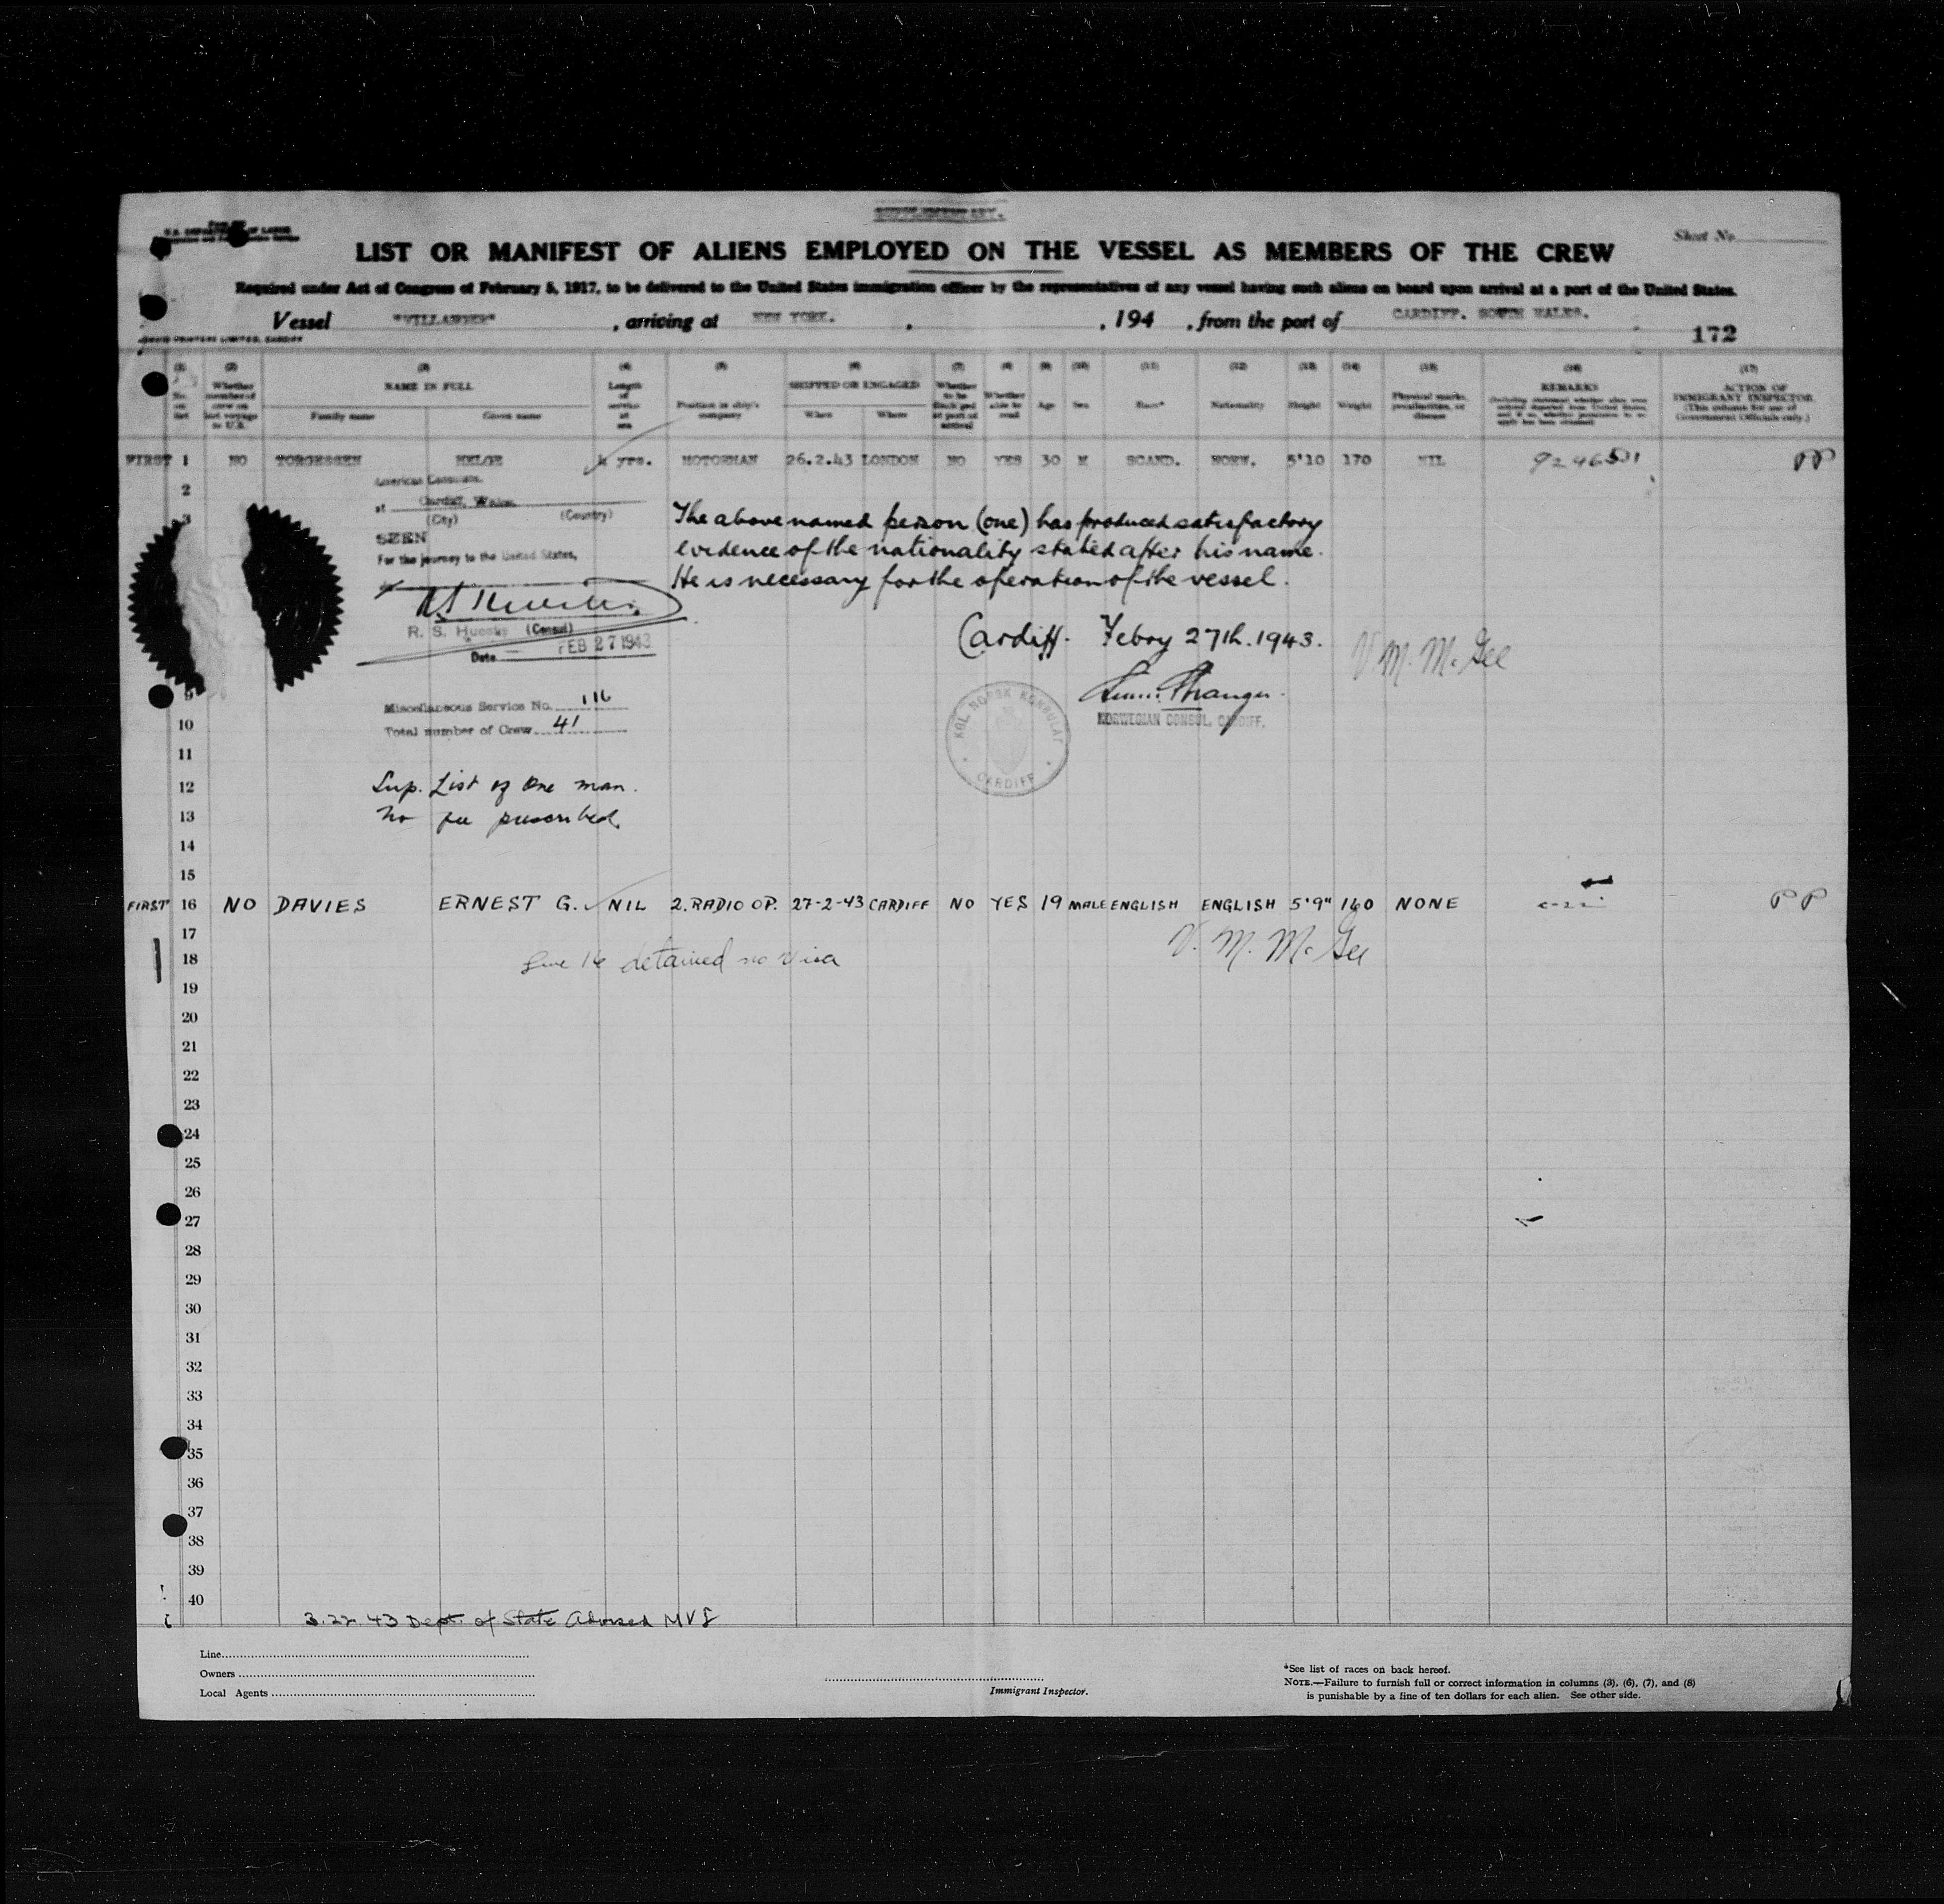 SUPPLEMENTARY.
LIST OR MANIFEST OF ALIENS EMPLOYED ON THE VESSEL AS MEMBERS OF THE CREW
Sheet No.
Required under Act of Congress of February 5, 1917, to be delivered to the United States immigration officer by the representatives of any vessel having such aliens on board upon arrival at a port of the United States.
Vessel "VILLANGER", arriving at NEW YORK. , 194 , from the port of CARDIFF. SOUTH WALES.
172
(1) (2) (3) (4) (5) (6) (7) (8) (9) (10) (11) (12) (13) (14) (15) (16) (17)
No. on list
Whether member of crew on last voyage to U.S.
NAME IN FULL
Family name Given name
Length of service at sea
Position in ship's company
SHIPPED OR ENGAGED
When Where
Whether to be discharged at port of arrival
Whether able to read
Age Sex Race* Nationality Height Weight
Physical marks, peculiarities, or disease
REMARKS
ACTION OF IMMIGRANT INSPECTOR
(This column for use of Government Officials only.)
FIRST 1 NO TORGERSEN HELGE 4 yrs. MOTORMAN 26.2.43 LONDON NO YES 30 M SCAND. NORW. 5'10 170 NIL PP
2
American Consulate.
at Cardiff, Wales
(City) (Country)
SEEN
For the journey to the United States,
R. S. Huestis (Consul)
Date FEB 27 1943
3
The above named person (one) has produced satisfactory
evidence of the nationality stated after his name.
He is necessary for the operation of the vessel.
Cardiff. Febry 27th. 1943.
V. M. McGee
NORWEGIAN CONSUL, CARDIFF.
KGL NORSK KONSULAT
CARDIFF
9
Miscellaneous Service No. 116
10
Total number of Crew 41
11
12
Sup. List of One man.
13
No fee prescribed.
14
15
FIRST 16 NO DAVIES ERNEST G. NIL 2. RADIO OP. 27-2-43 CARDIFF NO YES 19 MALE ENGLISH ENGLISH 5'9" 140 NONE PP
17
V. M. McGee
18
Line 16 detained no Visa
19
20
21
22
23
24
25
26
27
28
29
30
31
32
33
34
35
36
37
38
39
40
3.22.43 Dept. of State Advised
Line
Owners
Local Agents
Immigrant Inspector.
*See list of races on back hereof.
NOTE.—Failure to furnish full or correct information in columns (3), (6), (7), and (8)
is punishable by a fine of ten dollars for each alien. See other side.